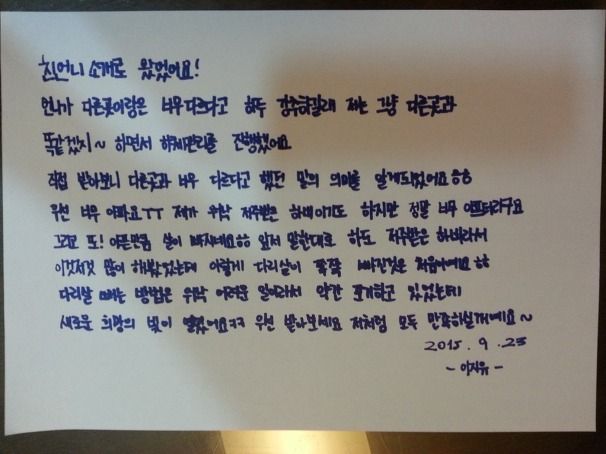 친언니 소개로 왔었어요!
언니가 다른곳이랑은 너무 다르다고 하두 강추하길래 저는 그냥 다른곳과
똑같겠지~ 하면서 하체관리를 진행했어요
직접 받아보니 다른곳과 너무 다르다고 했던 말의 의미를 알게되었어요ㅎㅎ
우선 너무 아파요ㅜㅜ 제가 워낙 저주받은 하체이기도 하지만 정말 너무 아프더라구요
그리고 또! 아픈만큼 살이 빠지네요ㅎㅎ 앞서 말한대로 하도 저주받은 하체라서
이것저것 많이 해봤었는데 이렇게 다리살이 쭉쭉 빠진것은 처음이에요ㅎㅎ
다리살 빼는 방법은 워낙 어려운 일이라서 약간 포기하고 있었는데
새로운 희망의 빛이 열렸어요ㅋㅋ 우선 받아보세요 저처럼 모두 만족하실꺼예요~
2015. 9. 23
- 이지유 -